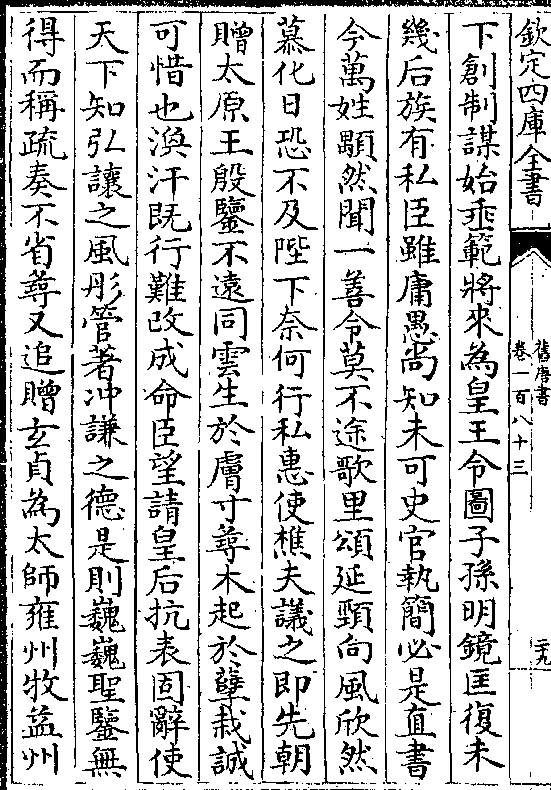 欽定四庫全書
舊唐書
卷一百八十三
二十九
下創制謀始垂範將來為皇王令圖子孫明鏡匡復未
幾后族有私臣雖庸愚尚知未可史官執簡必是直書
今萬姓顒然聞一善令莫不途歌里頌延頸向風欣然
慕化日恐不及陛下奈何行私惠使樵夫議之即先朝
贈太原王殷鑒不遠同雲生於膚寸尋木起於蘖栽誠
可惜也渙汗既行難改成命臣望請皇后抗表固辭使
天下知弘讓之風彤管著冲謙之德是則巍巍聖鑒無
得而稱疏奏不省尋又追贈玄貞為太師雍州牧益州